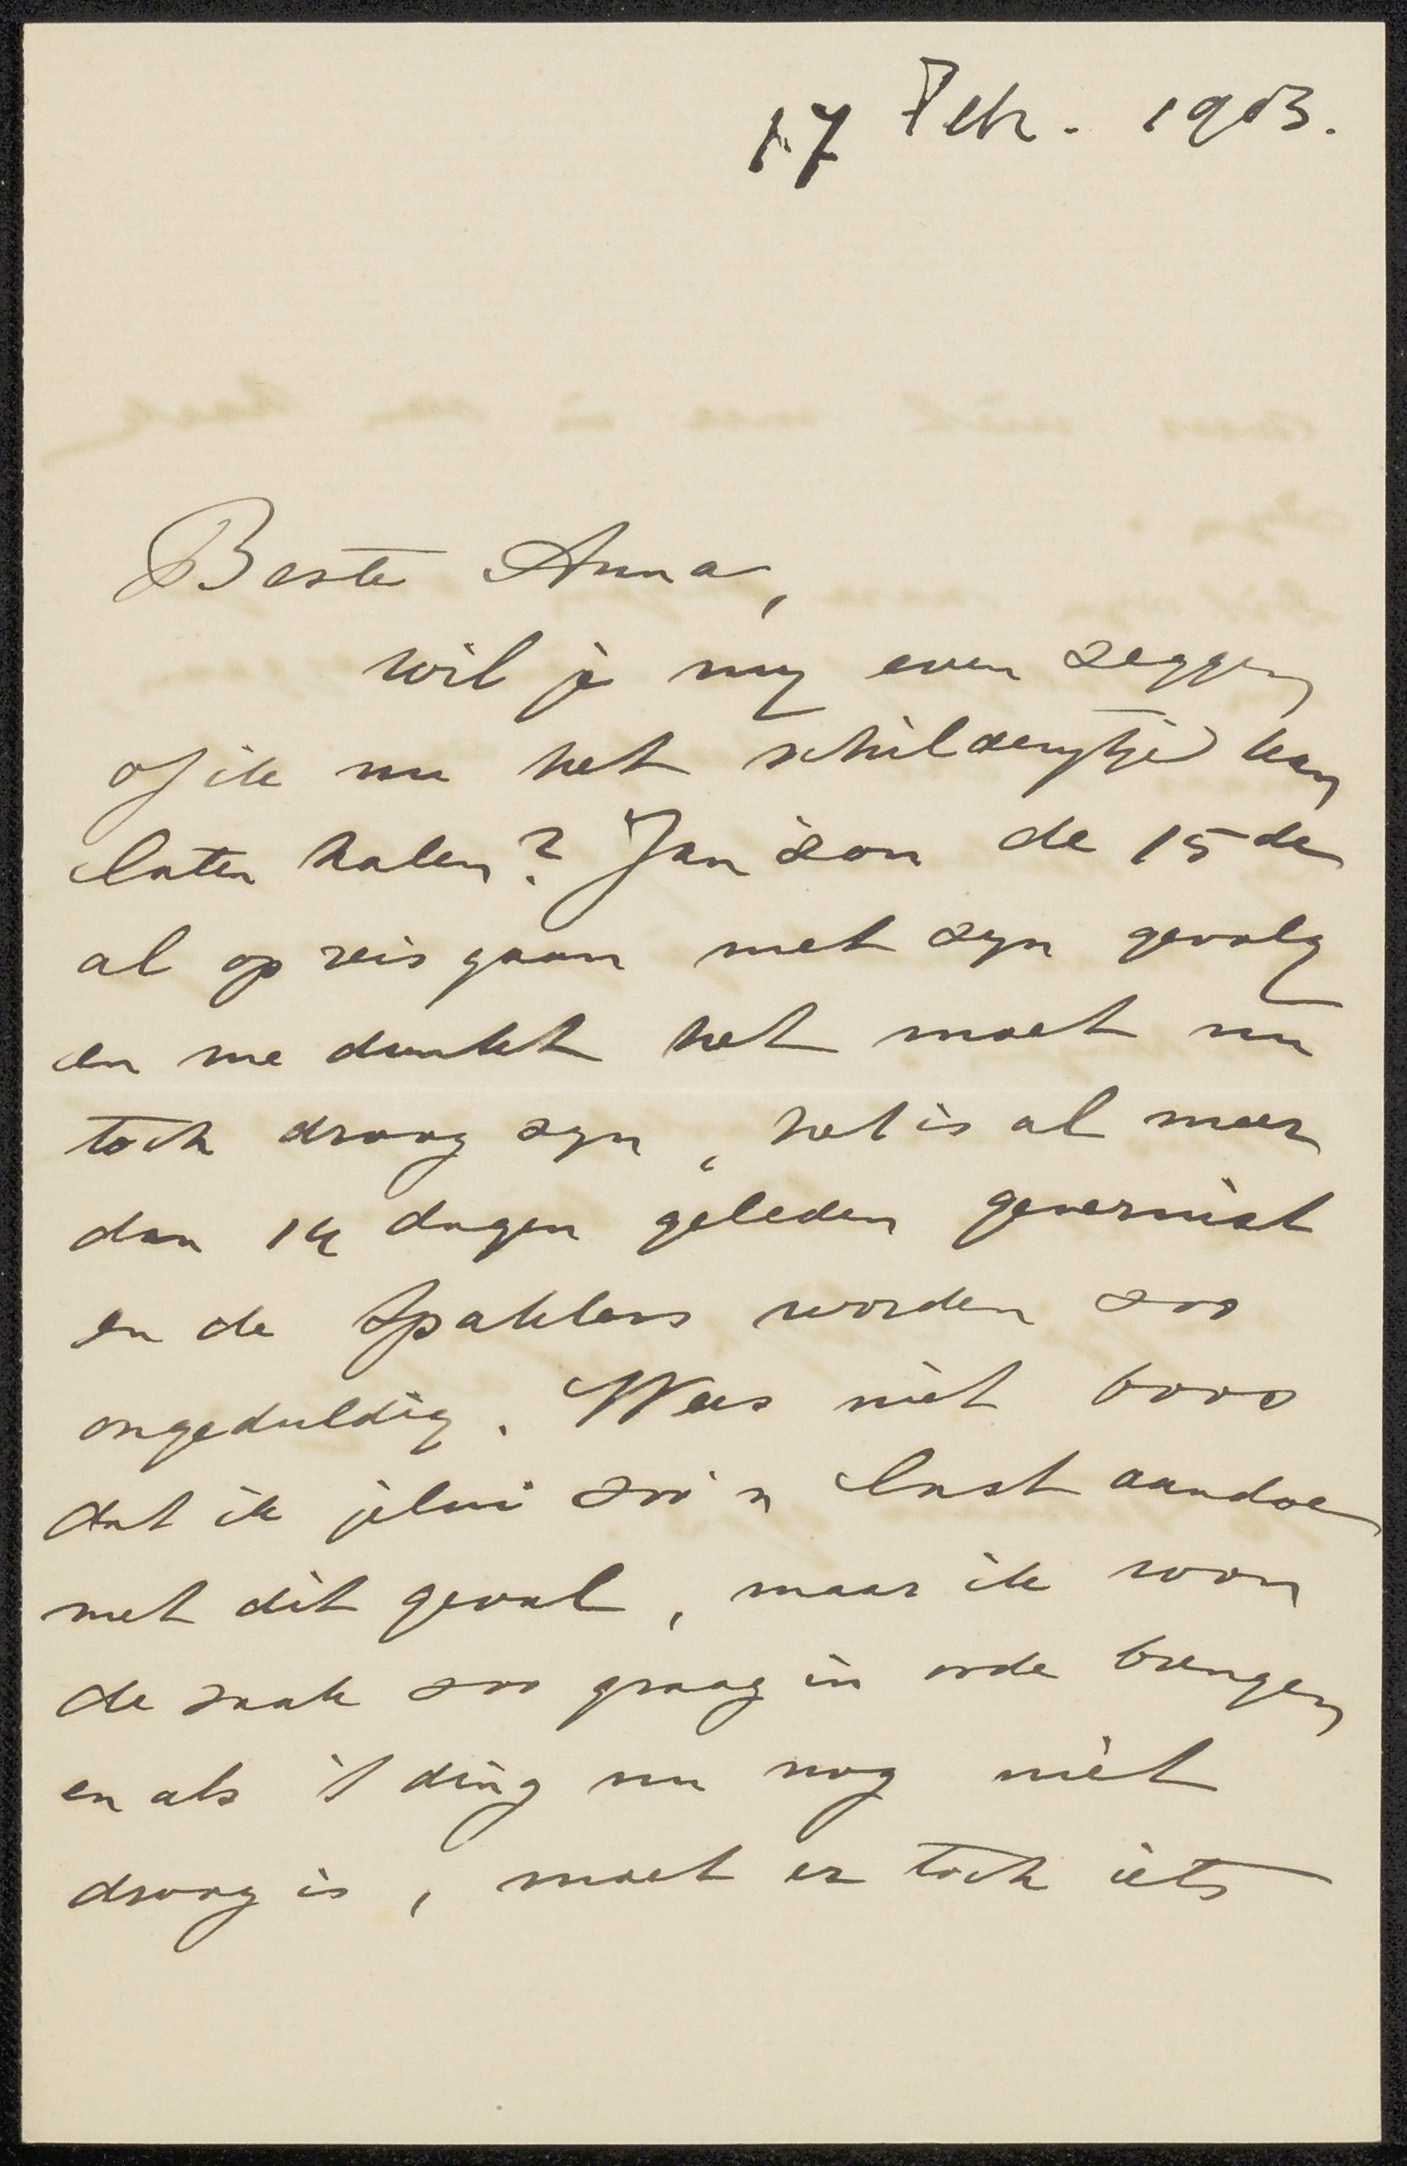 17 Feb. 1903.
Beste Anna,
wil je my even zeggen
of ik nu het schilderytje kan
laten halen? Jan zou de 15de
al op reis gaan met zyn gevolg
en me dunkt het moet nu
toch droog zyn, het is al meer
dan 14 dagen geleden gevernist
en de Spaklers worden zoo
ongeduldig. Wees niet boos
dat ik jelui zoo'n last aandoe
met dit geval, maar ik wou
de zaak zoo graag in orde brengen
en als 't ding nu nog niet
droog is, moet er toch iets